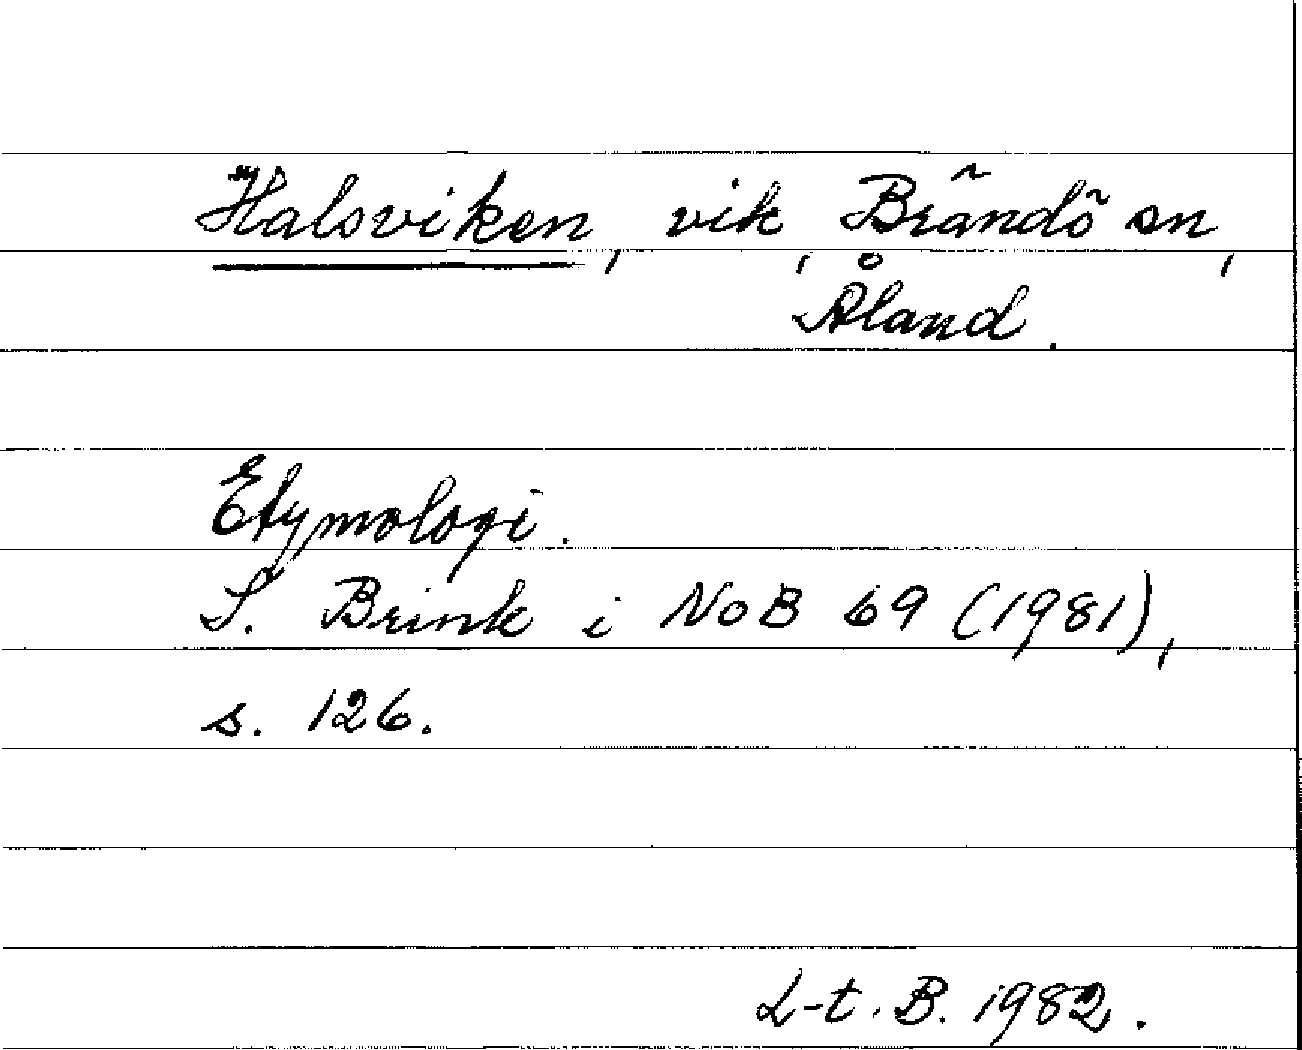 Halsviken, vik, Brändö sn,
Åland.
Etymologi.
S. Brink i NoB 69 (1981),
s. 126.
L-t. B. 1982.